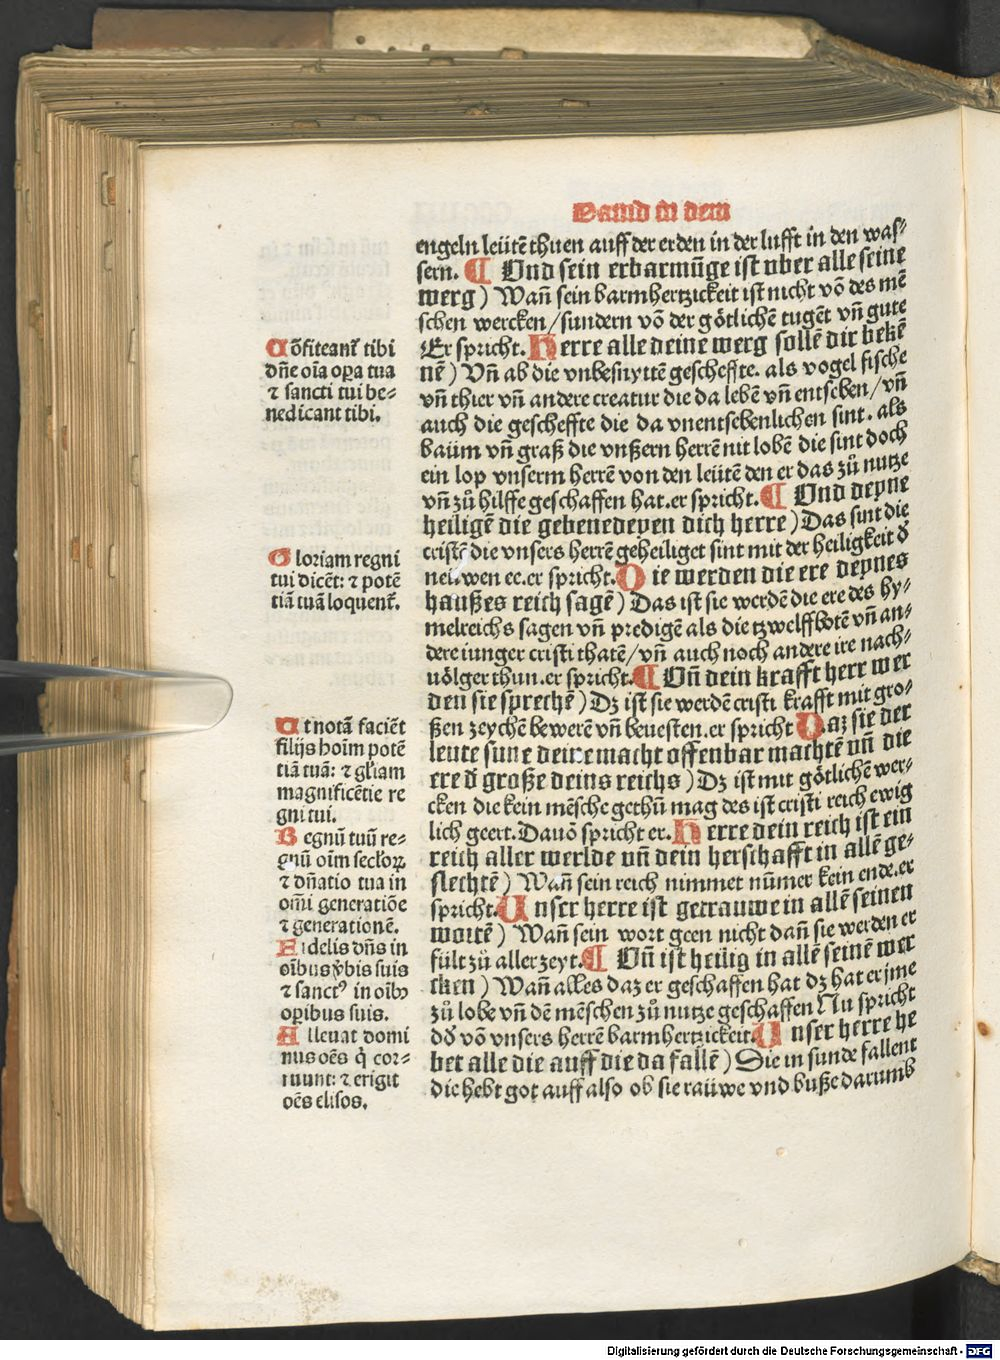 Dauid in dem
engeln leütē thuen auff der erden in der lufft in den waſ⸗
ſern. ¶ Vnd ſein erbarmūge iſt vber alle ſeine
werg ) Wañ ſein barmhertzickeit iſt nicht vō des mē
ſchen wercken / ſundern vō der götlichē tugēt vñ gute
Er ſpricht. Herre alle deine werg ſollē dir bekē
nē ) Vñ ab die vnbeſnyttē geſcheffte. als vogel fiſche
vñ thier vñ andere creatur die da lebē vñ entſeben / vñ
auch die geſcheffte die da vnentſebenlichen ſint. als
baüm vñ graß die vnßern herrē nit lobē die ſint doch
ein lop vnſerm herrē von den leütē den er das zů nutze
vñ zů hilffe geſchaffen hat. er ſpricht. ¶ Vnd deyne
heiligē die gebenedeyen dich herre ) Das ſint die
criſtē die vnſers herrē geheiliget ſint mit der heiligkeit d̄
neüwen ee. er ſpricht. Die werden die ere deynes
haußes reich ſagē ) Das iſt ſie werdē die ere des hy⸗
melreichs ſagen vñ predigē als die tzwelffbotē vñ an⸗
dere iunger criſti thatē / vñ auch noch andere ire nach⸗
uölger thun. er ſpricht. ¶ Vñ dein krafft herr wer
den ſie ſprechē ) Dz iſt ſie werdē criſti krafft mit gro⸗
ßen zeychē bewerē vñ beueſten. er ſpricht Daz ſie der
leute ſune deine macht offenbar machtē vñ die
ere d̄ große deins reichs ) Dz iſt mit götlichē wer⸗
cken die kein mēſche gethū mag des iſt criſti reich ewig
lich geert. Dauō ſpricht er. Herre dein reich iſt ein
reich aller werlde vñ dein herſchafft in allē ge⸗
ſlechtē ) Wañ ſein reich nimmet nūmer kein ende. er
ſpricht. Unſer herre iſt getrauwe in allē ſeinen
wortē ) Wañ ſein wort geen nicht dañ ſie werden er
fült zü aller zeyt. ¶ Vñ iſt heilig in allē ſeinē wer
cken ) Wañ alles daz er geſchaffen hat dz hat er jme
zů lobe vñ dē mēſchen zů nutze geſchaffen Nu ſpricht
dd̄ vō vnſers herrē barmhertzickeit. Unſer herre he
bet alle die auff die da fallē ) Die in ſunde fallent
die hebt got auff alſo ob ſie raüwe vnd buße darumb
Cōfiteant᷑ tibi
dñe oīa oꝑa tua
⁊ ſancti tui be⸗
nedicant tibi.
Gloriam regni
tui dicēt: ⁊ potē
tiā tuā loquent᷑.
Ut notā faciēt
filijs hoīm potē
tiā tuā: ⁊ gl̄iam
magnificētie re
gni tui.
Regnū tuū re⸗
gnū oīm ſecl̄oꝝ
⁊ dñatio tua in
om̄i generatiōe
⁊ generationē.
Fidelis dñs in
oībus v̄bis ſuis
⁊ ſanctꝰ in oībꝫ
oꝑibus ſuis.
Alleuat domi
nus oēs q̄ cor⸗
ruunt: ⁊ erigit
oēs eliſos.
Digitalisierung gefördert durch die Deutsche Forschungsgemeinschaft - DFG